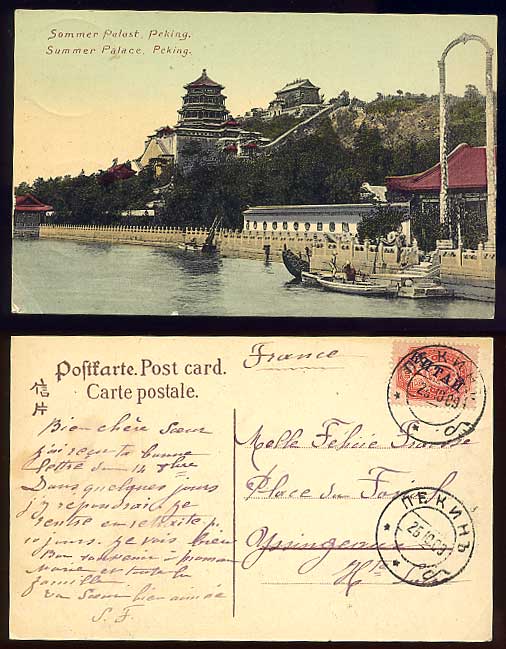 Sommer Palast, Peking.
Summer Palace, Peking.
Postkarte. Post card.
Carte postale.
信片
France
КИТАЙ
ПЕКИНЪ
25.10.09
Bien chère Sœur
j'ai reçu ta bonne
lettre du 14
Dans quelques jours
j'y repondrai. je
rentre en
10 jours. je vais bien
Bon souvenir à
Marie et toute la
famille
ta Sœur bien aimée
S. F.
Melle Félicie
Place du
Yssingeaux
Hte
ПЕКИНЪ
25.10.09